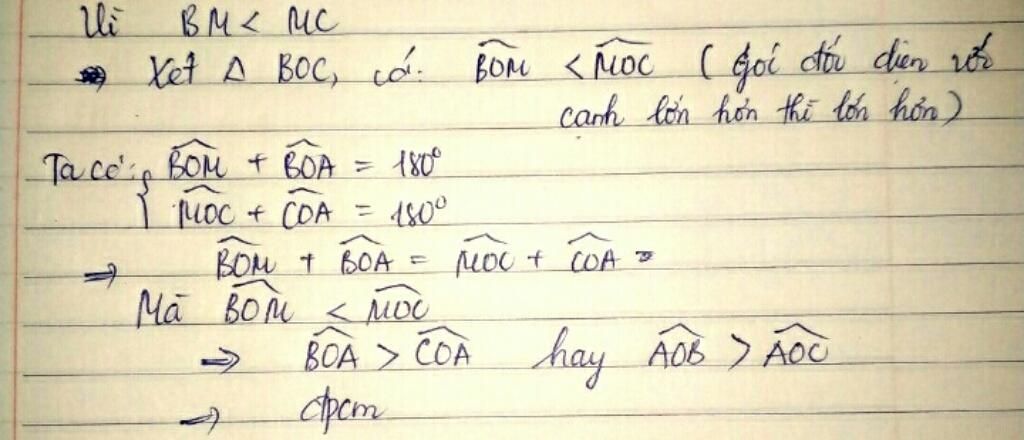 Vì BM < MC
Xét Δ BOC, có: \widehat{BOM} < \widehat{MOC} (góc đối diện với
cạnh lớn hơn thì lớn hơn)
Ta có: { \widehat{BOM} + \widehat{BOA} = 180°
\widehat{MOC} + \widehat{COA} = 180°
⇒ \widehat{BOM} + \widehat{BOA} = \widehat{MOC} + \widehat{COA} =
Mà \widehat{BOM} < \widehat{MOC}
⇒ \widehat{BOA} > \widehat{COA} hay \widehat{AOB} > \widehat{AOC}
⇒ đpcm